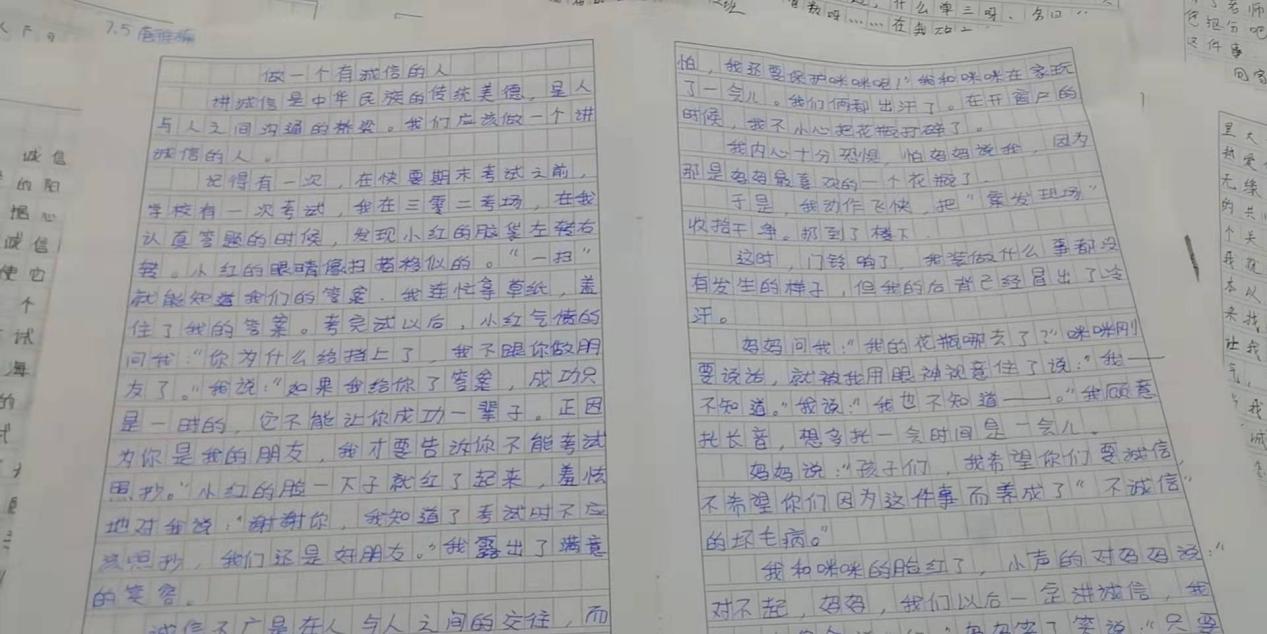 7.5
做一个有诚信的人
讲诚信是中华民族的传统美德，是人
与人之间沟通的桥梁。我们应该做一个讲
诚信的人。
记得有一次，在快要期末考试之前，
学校有一次考试，我在三零二考场，在我
认真答题的时候，发现小红的脑袋左转右
转。小红的眼睛像扫描枪似的。"一扫"
就能知道我们的答案，我连忙拿草纸，盖
住了我的答案。考完试以后，小红气愤的
问我："你为什么给挡上了，我不跟你做朋
友了。"我说："如果我给你了答案，成功只
是一时的，它不能让你成功一辈子。正因
为你是我的朋友，我才要告诉你不能考试
照抄。"小红的脸一下子就红了起来，羞怯
地对我说："谢谢你，我知道了考试时不应
该照抄，我们还是好朋友。"我露出了满意
的笑容。
诚信不广是在人与人之间的交往，而
怕，我还要保护咪咪呢！"我和咪咪在家玩
了一会儿。我们俩都出汗了。在开窗户的
时候，我不小心把花瓶打碎了。
我内心十分恐惧，怕妈妈说我，因为
那是妈妈最喜欢的一个花瓶了。
于是，我动作飞快，把"案发现场"
收拾干净。扔到了楼下
这时，门铃响了，我装做什么事都没
有发生的样子，但我的后背已经冒出了冷
汗。
妈妈问我："我的花瓶哪去了？"咪咪刚
要说话，就被我用眼神视意住了说："我——
不知道。"我说："我也不知道——。"我故意
托长音，想多托一会时间是一会儿。
妈妈说："孩子们，我希望你们要诚信，
不希望你们因为这件事而养成了"不诚信"
的坏毛病。"
我和咪咪的脸红了，小声的对妈妈说："
对不起，妈妈，我们以后一定讲诚信，我
妈妈笑了笑说："只要
诚信
的阳
诚信
使它
个
试